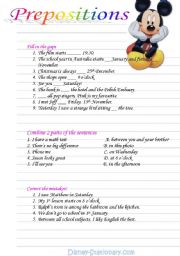 Prepositions
Fill in the gaps
1. The film starts ____ 19.30
2. The school year in Australia starts ___ January and finishes ___
November.
3. Christmas is always ___ 25th december.
4. The shops open ___ 6 o'clock
5. See you ___ Saturday!
6. The bank is ___ the hotel and the Polish Embassy.
7. ___ all pop singers, Pink is my favourite.
8. I must Joey ___ Friday, 13th November.
9. Yesterday I saw a strange bird sitting ___ the tree.
Combine 2 parts of the sentences
1. I have a math test
2. There's no big difference
3. Phone me
4. Jason looks great
5. I'll see you
A: between you and your brother
B: in this photo.
C: on Wednesday
D: at 6 o'clock
Correct the mistakes!
1. I saw Matthew in Saturday.
2. My 1st lesson starts on 8 o'clock.
3. Ralph's room is among the bathroom and the kitchen.
4. We don't go to school in 1st January.
5. Between all school subjects, I like English the best.